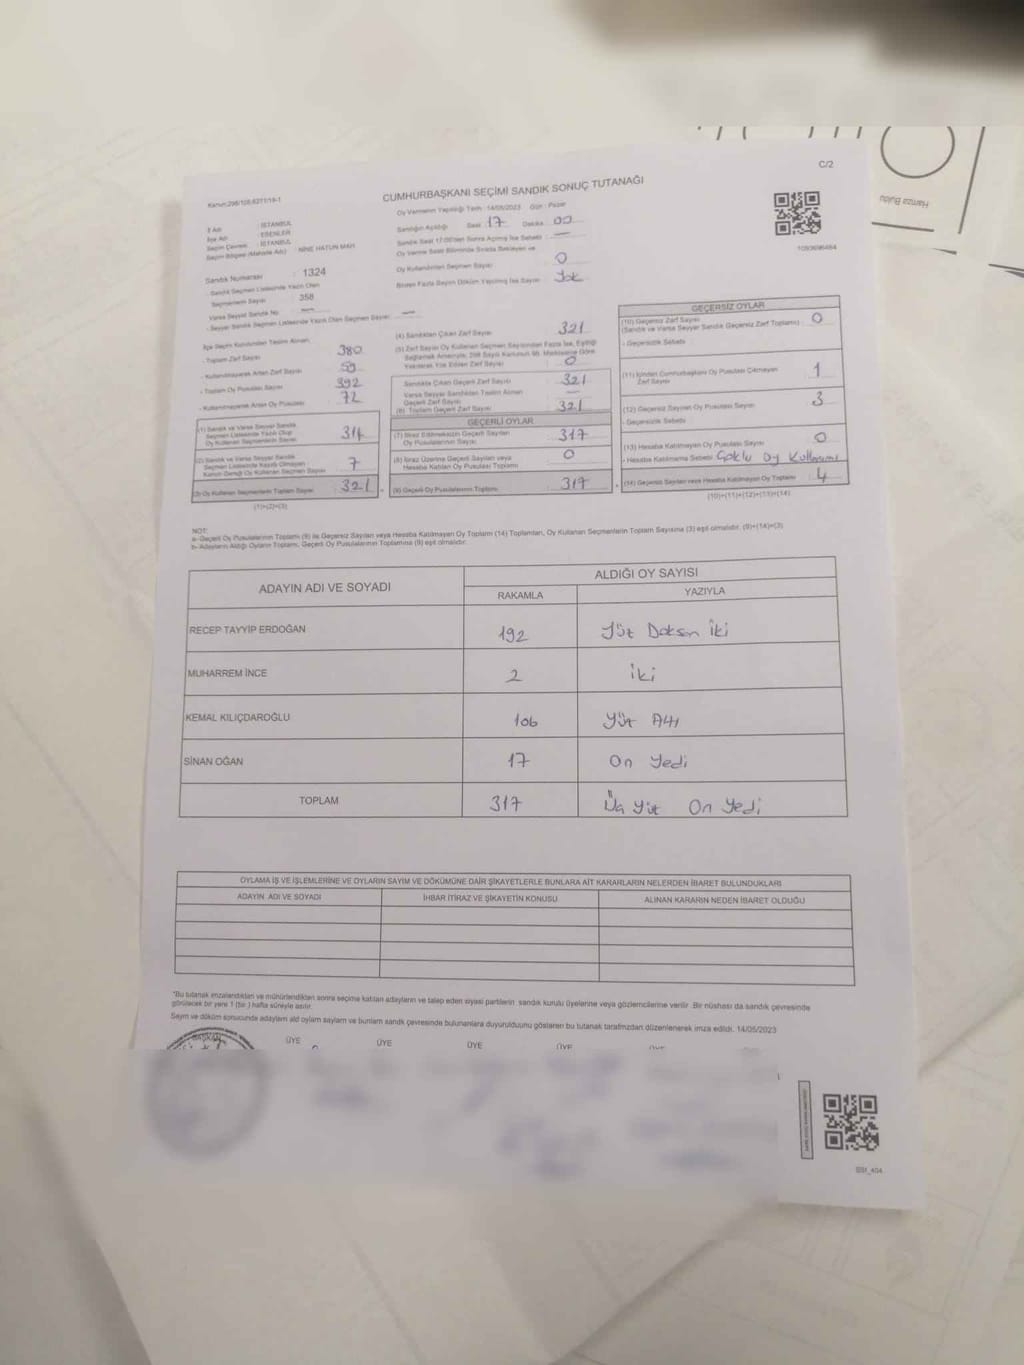 C/2
CUMHURBAŞKANI SEÇİMİ SANDIK SONUÇ TUTANAĞI
Oy Vermenin Yapıldığı Tarih : 14/05/2023 Gün : Pazar
İl Adı : İSTANBUL
İlçe Adı : ESENLER
Seçim Çevresi : İSTANBUL
Seçim Bölgesi (Mahalle Adı) : NİNE HATUN MAH.
Sandık Numarası : 1324
- Sandık Seçmen Listesinde Yazılı Olan
Seçmenlerin Sayısı : 358
Varsa Seyyar Sandık No : —
- Seyyar Sandık Seçmen Listesinde Yazılı Olan Seçmen Sayısı : —
Sandığın Açıldığı Saat : 17 Dakika : 00
Sandık Saat 17:00'den Sonra Açılmış İse Sebebi : —
Oy Verme Saati Bitiminde Sırada Bekleyen ve
Oy Kullandırılan Seçmen Sayısı : 0
Birden Fazla Sayım Döküm Yapılmış İse Sayısı : Yok
1093696464
İlçe Seçim Kurulundan Teslim Alınan
- Toplam Zarf Sayısı : 380
- Kullanılmayarak Artan Zarf Sayısı : 59
- Toplam Oy Pusulası Sayısı : 392
- Kullanılmayarak Artan Oy Pusulası : 72
(1) Sandık ve Varsa Seyyar Sandık
Seçmen Listesinde Yazılı Olup
Oy Kullanan Seçmenlerin Sayısı : 314
(2) Sandık ve Varsa Seyyar Sandık
Seçmen Listesinde Kayıtlı Olmayan
Kanun Gereği Oy Kullanan Seçmen Sayısı : 7
(3) Oy Kullanan Seçmenlerin Toplam Sayısı : 321
(1)+(2)=(3)
(4) Sandıktan Çıkan Zarf Sayısı : 321
(5) Zarf Sayısı Oy Kullanan Seçmen Sayısından Fazla İse, Eşitliği
Sağlamak Amacıyla, 298 Sayılı Kanunun 98. Maddesine Göre
Yakılarak Yok Edilen Zarf Sayısı : 0
Sandıkta Çıkan Geçerli Zarf Sayısı : 321
Varsa Seyyar Sandıktan Teslim Alınan
Geçerli Zarf Sayısı : —
(6) Toplam Geçerli Zarf Sayısı : 321
GEÇERLİ OYLAR
(7) İtiraz Edilmeksizin Geçerli Sayılan
Oy Pusulalarının Sayısı : 317
(8) İtiraz Üzerine Geçerli Sayılan veya
Hesaba Katılan Oy Pusulası Toplamı : 0
(9) Geçerli Oy Pusulalarının Toplamı : 317
GEÇERSİZ OYLAR
(10) Geçersiz Zarf Sayısı
(Sandık ve Varsa Seyyar Sandık Geçersiz Zarf Toplamı) : 0
- Geçersizlik Sebebi :
(11) İçinden Cumhurbaşkanı Oy Pusulası Çıkmayan
Zarf Sayısı : 1
(12) Geçersiz Sayılan Oy Pusulası Sayısı : 3
- Geçersizlik Sebebi :
(13) Hesaba Katılmayan Oy Pusulası Sayısı : 0
- Hesaba Katılmama Sebebi : Çoklu oy Kullanımı
(14) Geçersiz Sayılan veya Hesaba Katılmayan Oy Toplamı : 4
(10)+(11)+(12)+(13)=(14)
NOT:
a- Geçerli Oy Pusulalarının Toplamı (9) ile Geçersiz Sayılan veya Hesaba Katılmayan Oy Toplamı (14) Toplamları, Oy Kullanan Seçmenlerin Toplam Sayısına (3) eşit olmalıdır. (9)+(14)=(3)
b- Adayların Aldığı Oyların Toplamı, Geçerli Oy Pusulalarının Toplamına (9) eşit olmalıdır.
ADAYIN ADI VE SOYADI ALDIĞI OY SAYISI
RAKAMLA YAZIYLA
RECEP TAYYİP ERDOĞAN 192 Yüz Doksan İki
MUHARREM İNCE 2 İki
KEMAL KILIÇDAROĞLU 106 Yüz Altı
SİNAN OĞAN 17 On Yedi
TOPLAM 317 Üç Yüz On Yedi
OYLAMA İŞ VE İŞLEMLERİNE VE OYLARIN SAYIM VE DÖKÜMÜNE DAİR ŞİKAYETLERLE BUNLARA AİT KARARLARIN NELERDEN İBARET BULUNDUKLARI
ADAYIN ADI VE SOYADI İHBAR İTİRAZ VE ŞİKAYETİN KONUSU ALINAN KARARIN NEDEN İBARET OLDUĞU
"Bu tutanak imzalandıktan ve mühürlendikten sonra seçime katılan adayların ve talep eden siyasi partilerin sandık kurulu üyelerine veya gözlemcilerine verilir. Bir nüshası da sandık çevresinde
görülecek bir yere 1 (bir ) hafta süreyle asılır.
Sayım ve döküm sonucunda adayların aldığı oyların sayıları ve bunların sandık çevresinde bulunanlara duyurulduğunu gösteren bu tutanak tarafımızdan düzenlenerek imza edildi. 14/05/2023
BAŞKAN ÜYE ÜYE ÜYE ÜYE